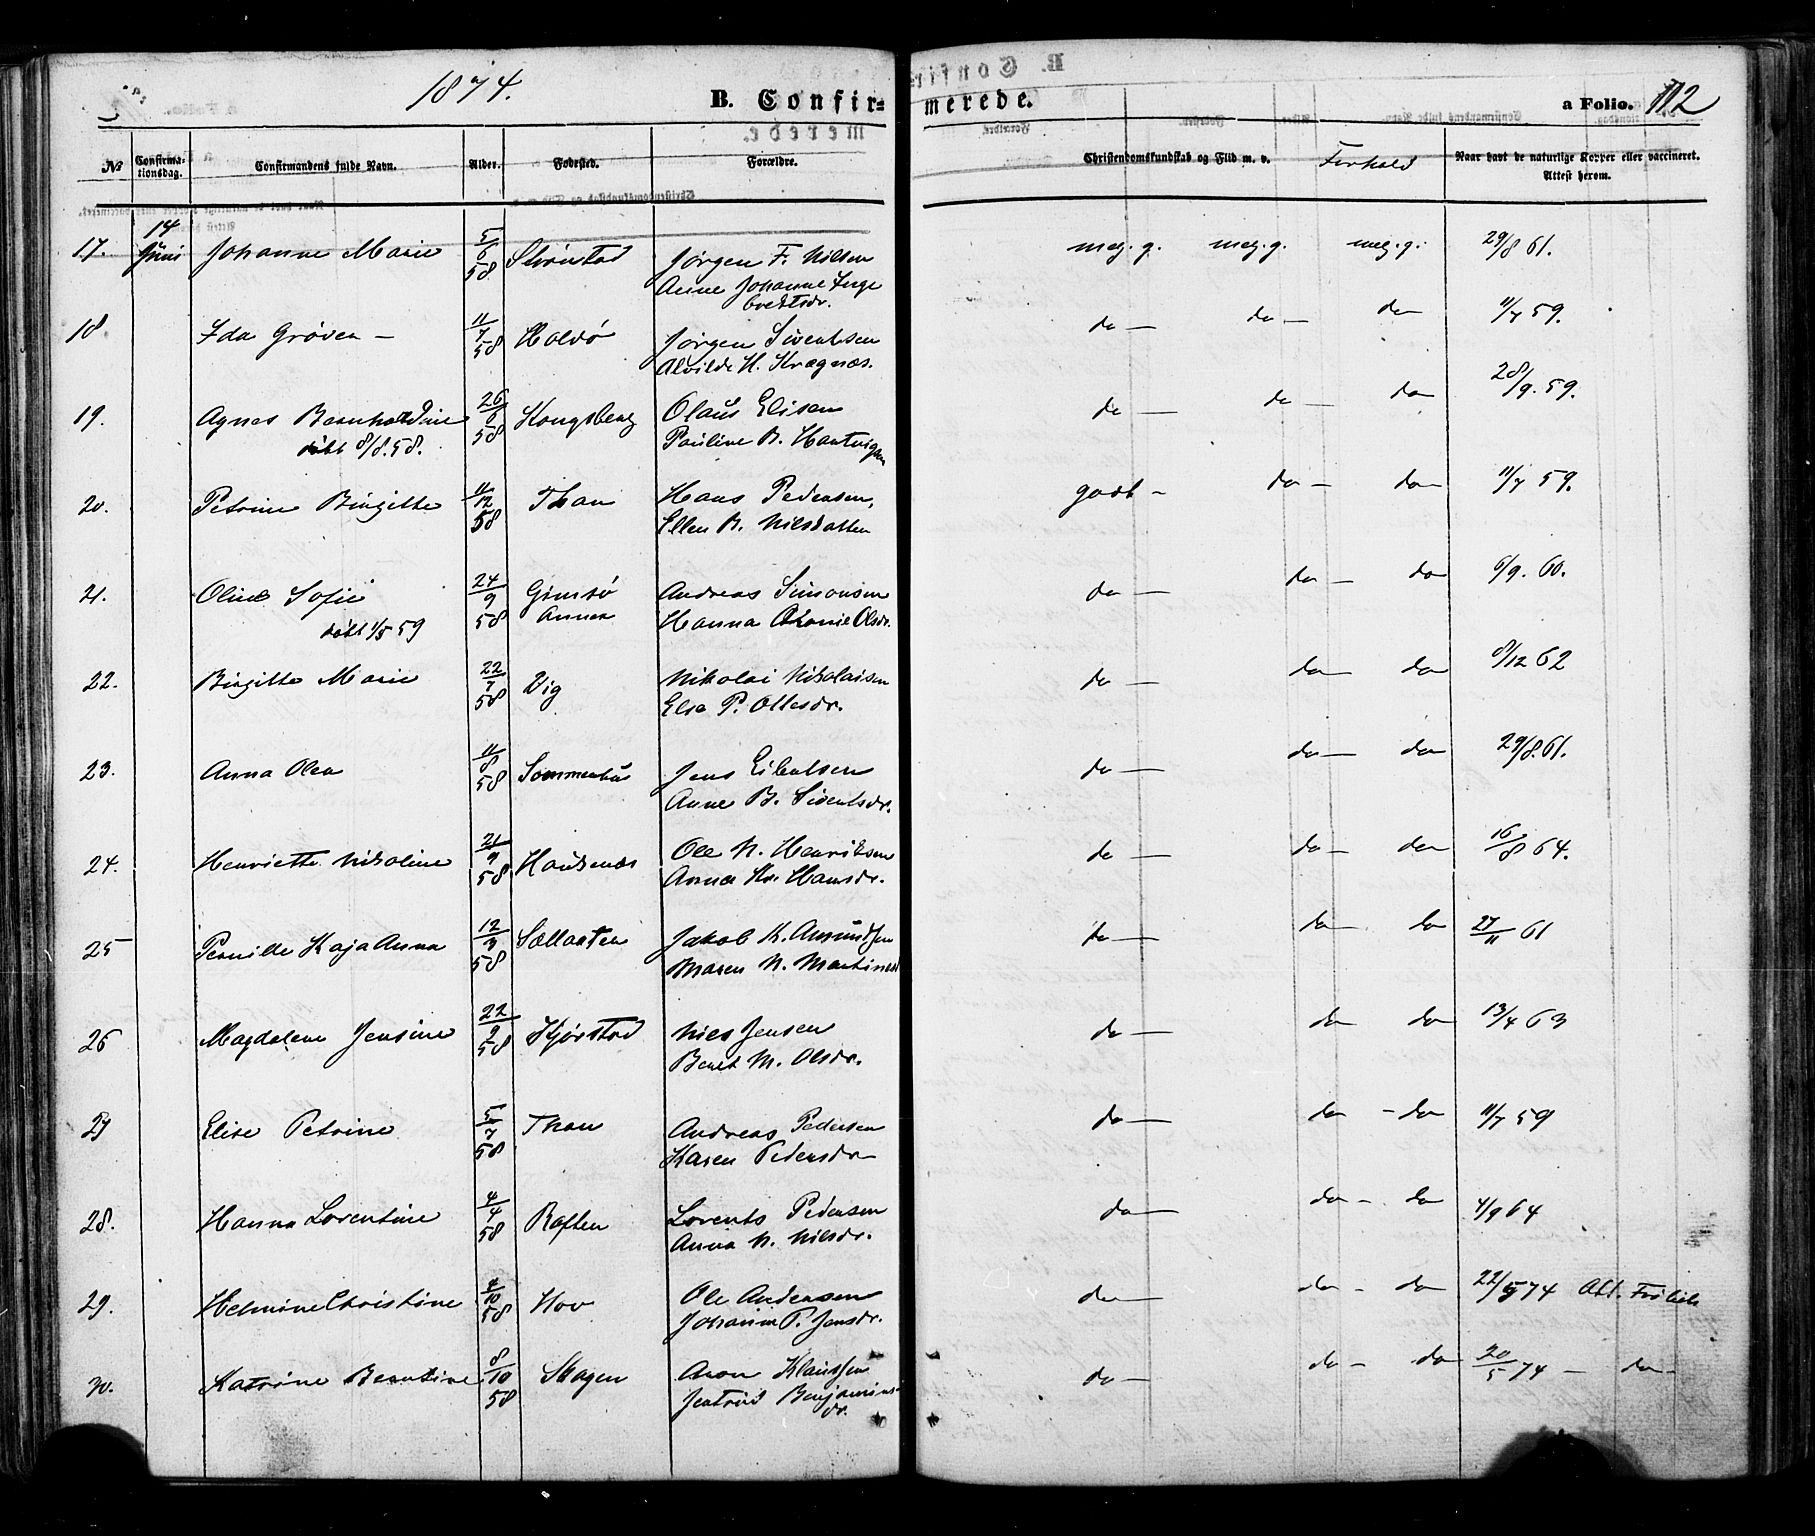 1874. B. Confirmerede. a Folio. 112
№ Confirmationsdag. Confirmandens fulde Navn. Alder. Fødested. Forældre. Christendomskundskab og Flid m. v. Forhold Naar havt de naturlige Kopper eller vaccineret. Attest herom.
17. 14 Juni Johanne Marie 5/6 58 Jørgen F. Nilsen meg. g. meg. g. meg. g. 29/8 61.
Anne Johanne Inge
brektsdr.
18 Ida Grøven — 11/7 58 Holdø Jørgen Siverthsen do — do — do 11/7 59.
Alvilde H. Kragnæs.
19. Agnes Bernhardine 26/6 58 Kongsberg Olaus Elisen do — do — do 28/9. 59.
døbt 8/8. 58. Pauline B. Hartvigsen
20. Petrine Birgitte 11/12 58 Than Hans Pedersen, godt — do — do 11/7 59.
Ellen B. Nilsdatter
21. Oline Sofie 24/9 58 Gimsø Annex Andreas Simonsen do — do — do 6/9. 60.
døbt 1/5 59 Hanna Olsdr.
22. Birgitte Marie 22/7 58 Vig Nikolai Nikolaisen do — do — do 8/12 62
Else P. Ottesdr.
23. Anna Olea 11/8 58 Sommerhus Jens Eilertsen do — do — do 29/8. 61.
Anne B. Sivertsdr.
24. Henriette Nikoline 21/9 58 Haugsnæs Ole N. Henriksen do — do — do 16/8 64.
Anna Kr. Hansdr.
25 Pernille Kaja Anna 12/3 58 Sellaater Jakob K. Amundsen do — do — do 27/11 61
Maren N. Martines
26 Magdalene Jensine 22/2 58 Kjørstad Niels Jensen do — do — do 13/4 63
Beret M. Olsdr.
27 Elise Petrine 5/7 58 Than Andreas Pedersen do — do — do 11/7 59
Karen Pedersdr
28. Hanna Lorentine 4/4 58 Raften Lorents Pedersen do — do — do 4/9 64
Anna N. Nilsdr.
29. Helmine Christine 4/10 58 Hov Ole Andersen do — do — do 22/5 74 Att. Frølich
Johanna P. Jensdr.
30. Katrine Berntine 8/10 58 Skagen Aron Klaussen do — do — do 20/5 74 — do —
Jertrud Benjamins
dr.